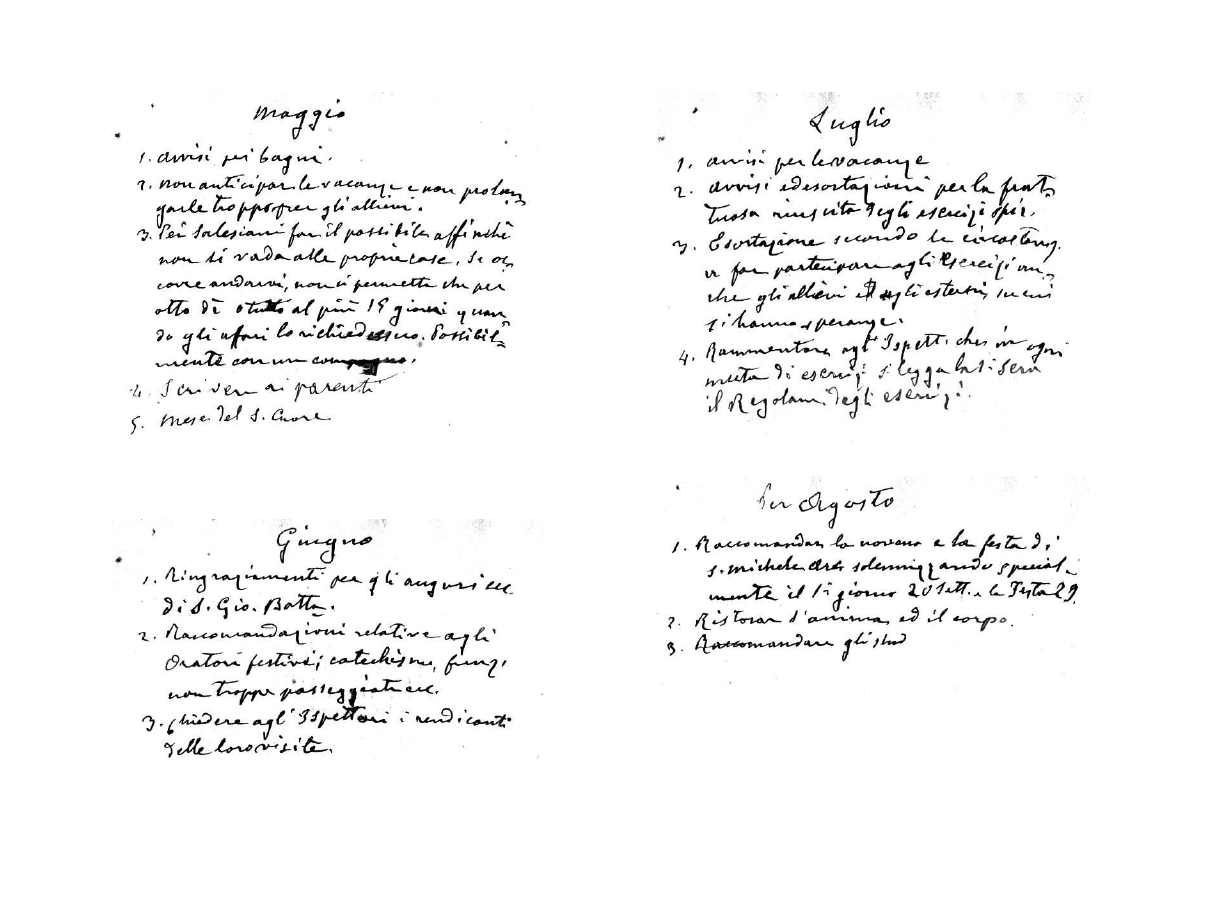 Maggio
1. Avvisi pei bagni.
2. Non anticipar le vacanze e non prolun
garle troppo per gli allievi.
3. Pei Salesiani far il possibile affinchè
non si vada alle proprie case. Se oc
corre andarvi, non si permette che per
otto dì o tutto al più 15 giorni quan
do gli affari lo richiedessero. Possibil=
mente con un compagno.
4. Scrivere ai parenti
5. Mese del S. Cuore
Giugno
1. Ringraziamenti per gli auguri ecc.
di S. Gio. Batta.
2. Raccomandazioni relative agli
Oratori festivi; catechismo, funzi
non troppe passeggiate ecc.
3. Chiedere agl' Ispettori i rendiconti
delle loro visite.
Luglio
1. Avvisi per le vacanze
2. Avvisi ed esortazioni per la frut
tuosa riuscita degli esercizi spir.
3. Esortazione secondo le circostanz.
a far partecipare agli Esercizi an
che gli allievi ed agli esterni su cui
si hanno speranze.
4. Rammentare agl' Ispett. che in ogni
muta di esercizi si legga
il Regolam. degli esercizi.
Per Agosto
1. Raccomandar la novena e la festa di
S. Michele solennizzando special-
mente il giorno 20 Sett. e la Festa 29.
2. Ristorar l'anima ed il corpo.
3. Raccomandare gli stud